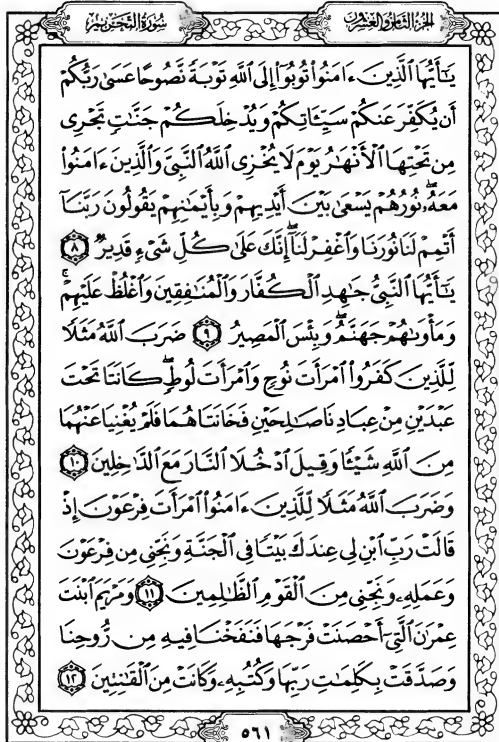 سُورَةُ التَّحْرِيمِ الجُزْءُ الثَّامِنُ وَالعِشْرُونَ
يَـٰٓأَيُّهَا ٱلَّذِينَ ءَامَنُوا۟ تُوبُوٓا۟ إِلَى ٱللَّهِ تَوْبَةً نَّصُوحًا عَسَىٰ رَبُّكُمْ
أَن يُكَفِّرَ عَنكُمْ سَيِّـَٔاتِكُمْ وَيُدْخِلَكُمْ جَنَّـٰتٍ تَجْرِى
مِن تَحْتِهَا ٱلْأَنْهَـٰرُ يَوْمَ لَا يُخْزِى ٱللَّهُ ٱلنَّبِىَّ وَٱلَّذِينَ ءَامَنُوا۟
مَعَهُۥۖ نُورُهُمْ يَسْعَىٰ بَيْنَ أَيْدِيهِمْ وَبِأَيْمَـٰنِهِمْ يَقُولُونَ رَبَّنَآ
أَتْمِمْ لَنَا نُورَنَا وَٱغْفِرْ لَنَآۖ إِنَّكَ عَلَىٰ كُلِّ شَىْءٍ قَدِيرٌ ٨
يَـٰٓأَيُّهَا ٱلنَّبِىُّ جَـٰهِدِ ٱلْكُفَّارَ وَٱلْمُنَـٰفِقِينَ وَٱغْلُظْ عَلَيْهِمْۚ
وَمَأْوَىٰهُمْ جَهَنَّمُۖ وَبِئْسَ ٱلْمَصِيرُ ٩ ضَرَبَ ٱللَّهُ مَثَلًا
لِّلَّذِينَ كَفَرُوا۟ ٱمْرَأَتَ نُوحٍ وَٱمْرَأَتَ لُوطٍۖ كَانَتَا تَحْتَ
عَبْدَيْنِ مِنْ عِبَادِنَا صَـٰلِحَيْنِ فَخَانَتَاهُمَا فَلَمْ يُغْنِيَا عَنْهُمَا
مِنَ ٱللَّهِ شَيْـًٔا وَقِيلَ ٱدْخُلَا ٱلنَّارَ مَعَ ٱلدَّٰخِلِينَ ١٠
وَضَرَبَ ٱللَّهُ مَثَلًا لِّلَّذِينَ ءَامَنُوا۟ ٱمْرَأَتَ فِرْعَوْنَ إِذْ
قَالَتْ رَبِّ ٱبْنِ لِى عِندَكَ بَيْتًا فِى ٱلْجَنَّةِ وَنَجِّنِى مِن فِرْعَوْنَ
وَعَمَلِهِۦ وَنَجِّنِى مِنَ ٱلْقَوْمِ ٱلظَّـٰلِمِينَ ١١ وَمَرْيَمَ ٱبْنَتَ
عِمْرَٰنَ ٱلَّتِىٓ أَحْصَنَتْ فَرْجَهَا فَنَفَخْنَا فِيهِ مِن رُّوحِنَا
وَصَدَّقَتْ بِكَلِمَـٰتِ رَبِّهَا وَكُتُبِهِۦ وَكَانَتْ مِنَ ٱلْقَـٰنِتِينَ ١٢
٥٦١